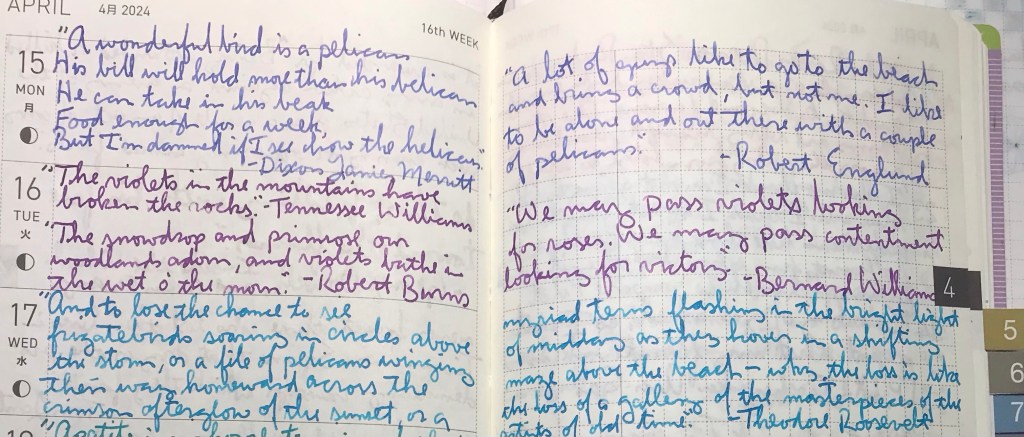 APRIL 4月 2024
16th WEEK
15
MON
月
"A wonderful bird is a pelican
His bill will hold more than his belican
He can take in his beak
Food enough for a week,
But I'm damned if I see how the helican."
-Dixon Lanier Merritt
16
TUE
火
"The violets in the mountains have
broken the rocks." -Tennessee Williams
"The snowdrop and primrose our
woodlands adorn, and violets bathe in
the wet o' the morn." -Robert Burns
17
WED
水
"And to lose the chance to see
frigatebirds soaring in circles above
the storm, or a file of pelicans winging
their way homeward across the
crimson afterglow of the sunset, or a
"A lot of guys like to go to the beach
and bring a crowd, but not me. I like
to be alone and out there with a couple
of pelicans."
-Robert Englund
"We may pass violets looking
for roses. We may pass contentment
looking for victory" -Bernard Williams
myriad terns flashing in the bright light
of midday as they hover in a shifting
maze above the beach - why, the loss is like
the loss of a gallery of the masterpieces of the
artists of old time." -Theodore Roosevelt
4
5
6
7